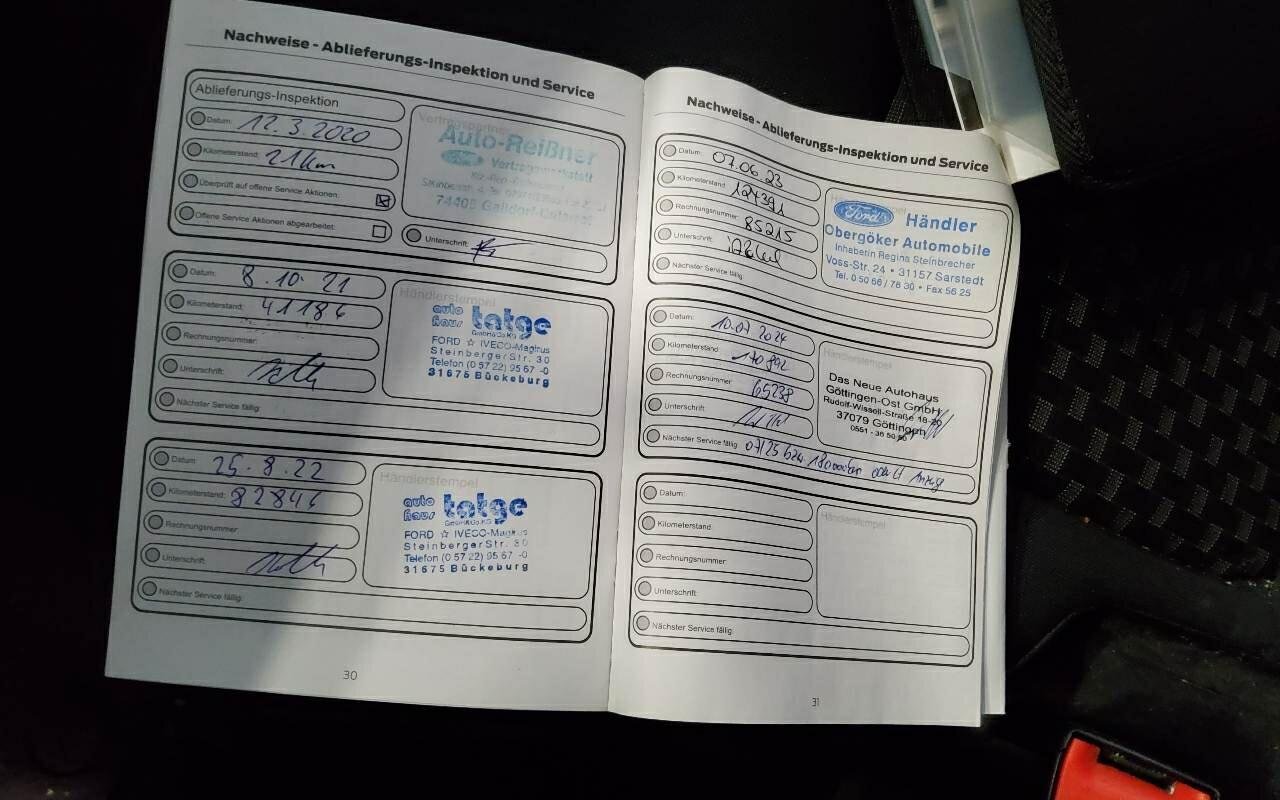 Nachweise - Ablieferungs-Inspektion und Service
Ablieferungs-Inspektion
Datum: 12.3.2020
Kilometerstand: 21 km
Überprüft auf offene Service Aktionen:
Offene Service Aktionen abgearbeitet:
Vertragspartner
Auto-Reißner
Ford Vertragswerkstatt
74405 Gaildorf-Unterrot
Unterschrift:
Datum: 8.10.21
Kilometerstand: 41184
Rechnungsnummer:
Unterschrift:
Nächster Service fällig:
Händlerstempel
auto haus tatge
GmbH&Co.KG
FORD ☆ IVECO-Magirus
Steinberger Str. 30
Telefon (0 57 22) 95 67 -0
31675 Bückeburg
Datum: 25.8.22
Kilometerstand: 82846
Rechnungsnummer:
Unterschrift:
Nächster Service fällig:
Händlerstempel
auto haus tatge
GmbH&Co.KG
FORD ☆ IVECO-Magirus
Steinberger Str. 30
Telefon (0 57 22) 95 67 -0
31675 Bückeburg
30
Nachweise - Ablieferungs-Inspektion und Service
Datum: 07.06.23
Kilometerstand: 124391
Rechnungsnummer: 85215
Unterschrift:
Nächster Service fällig:
Händlerstempel
Ford Händler
Obergöker Automobile
Inhaberin Regina Steinbrecher
Voss-Str. 24 • 31157 Sarstedt
Tel. 0 50 66 / 78 30 • Fax 56 25
Datum: 10.07.2024
Kilometerstand: 170892
Rechnungsnummer: 65238
Unterschrift:
Nächster Service fällig: 07/25
Händlerstempel
Das Neue Autohaus
Göttingen-Ost GmbH
Rudolf-Wissell-Straße 18-20
37079 Göttingen
0551 - 38 50
Datum:
Kilometerstand:
Rechnungsnummer:
Unterschrift:
Nächster Service fällig:
Händlerstempel
31